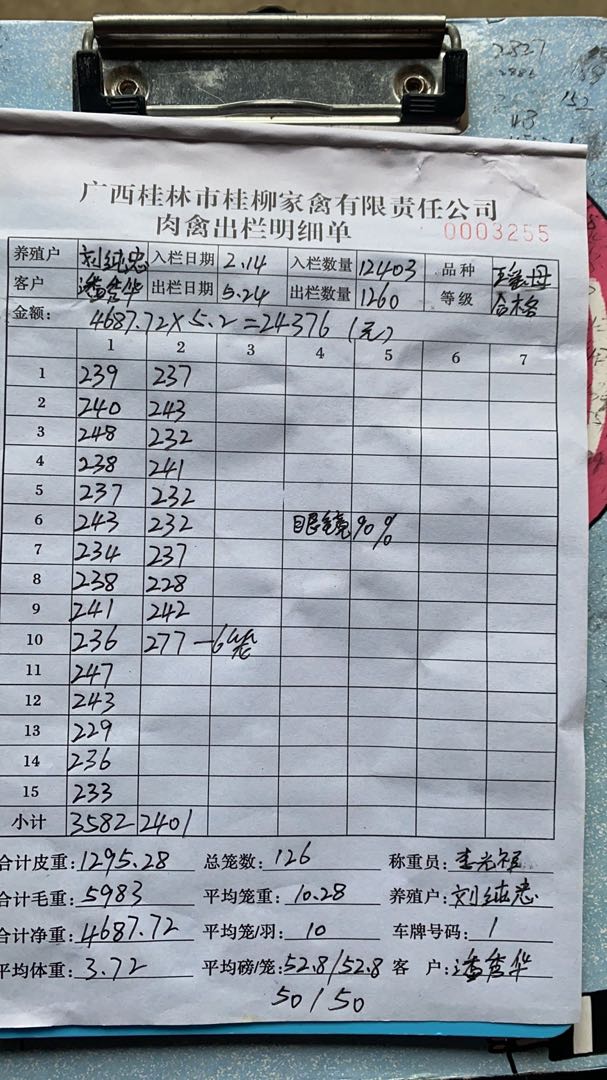 广西桂林市桂柳家禽有限责任公司
肉禽出栏明细单
0003255
养殖户 刘纯忠 入栏日期 2.14 入栏数量 12403 品种 瑶母
客户 潘秀华 出栏日期 5.24 出栏数量 1260 等级 合格
金额: 4687.72×5.2=24376(元)
1 2 3 4 5 6 7
1 239 237
2 240 243
3 248 232
4 238 241
5 237 232
6 243 232 眼镜90%
7 234 237
8 238 228
9 241 242
10 236 277 —6笼
11 247
12 243
13 229
14 236
15 233
小计 3582 2401
合计皮重: 1295.28 总笼数: 126 称重员:
合计毛重: 5983 平均笼重: 10.28 养殖户: 刘纯忠
合计净重: 4687.72 平均笼/羽: 10 车牌号码: 1
平均体重: 3.72 平均磅/笼: 52.8/52.8 客 户: 潘秀华
50/50